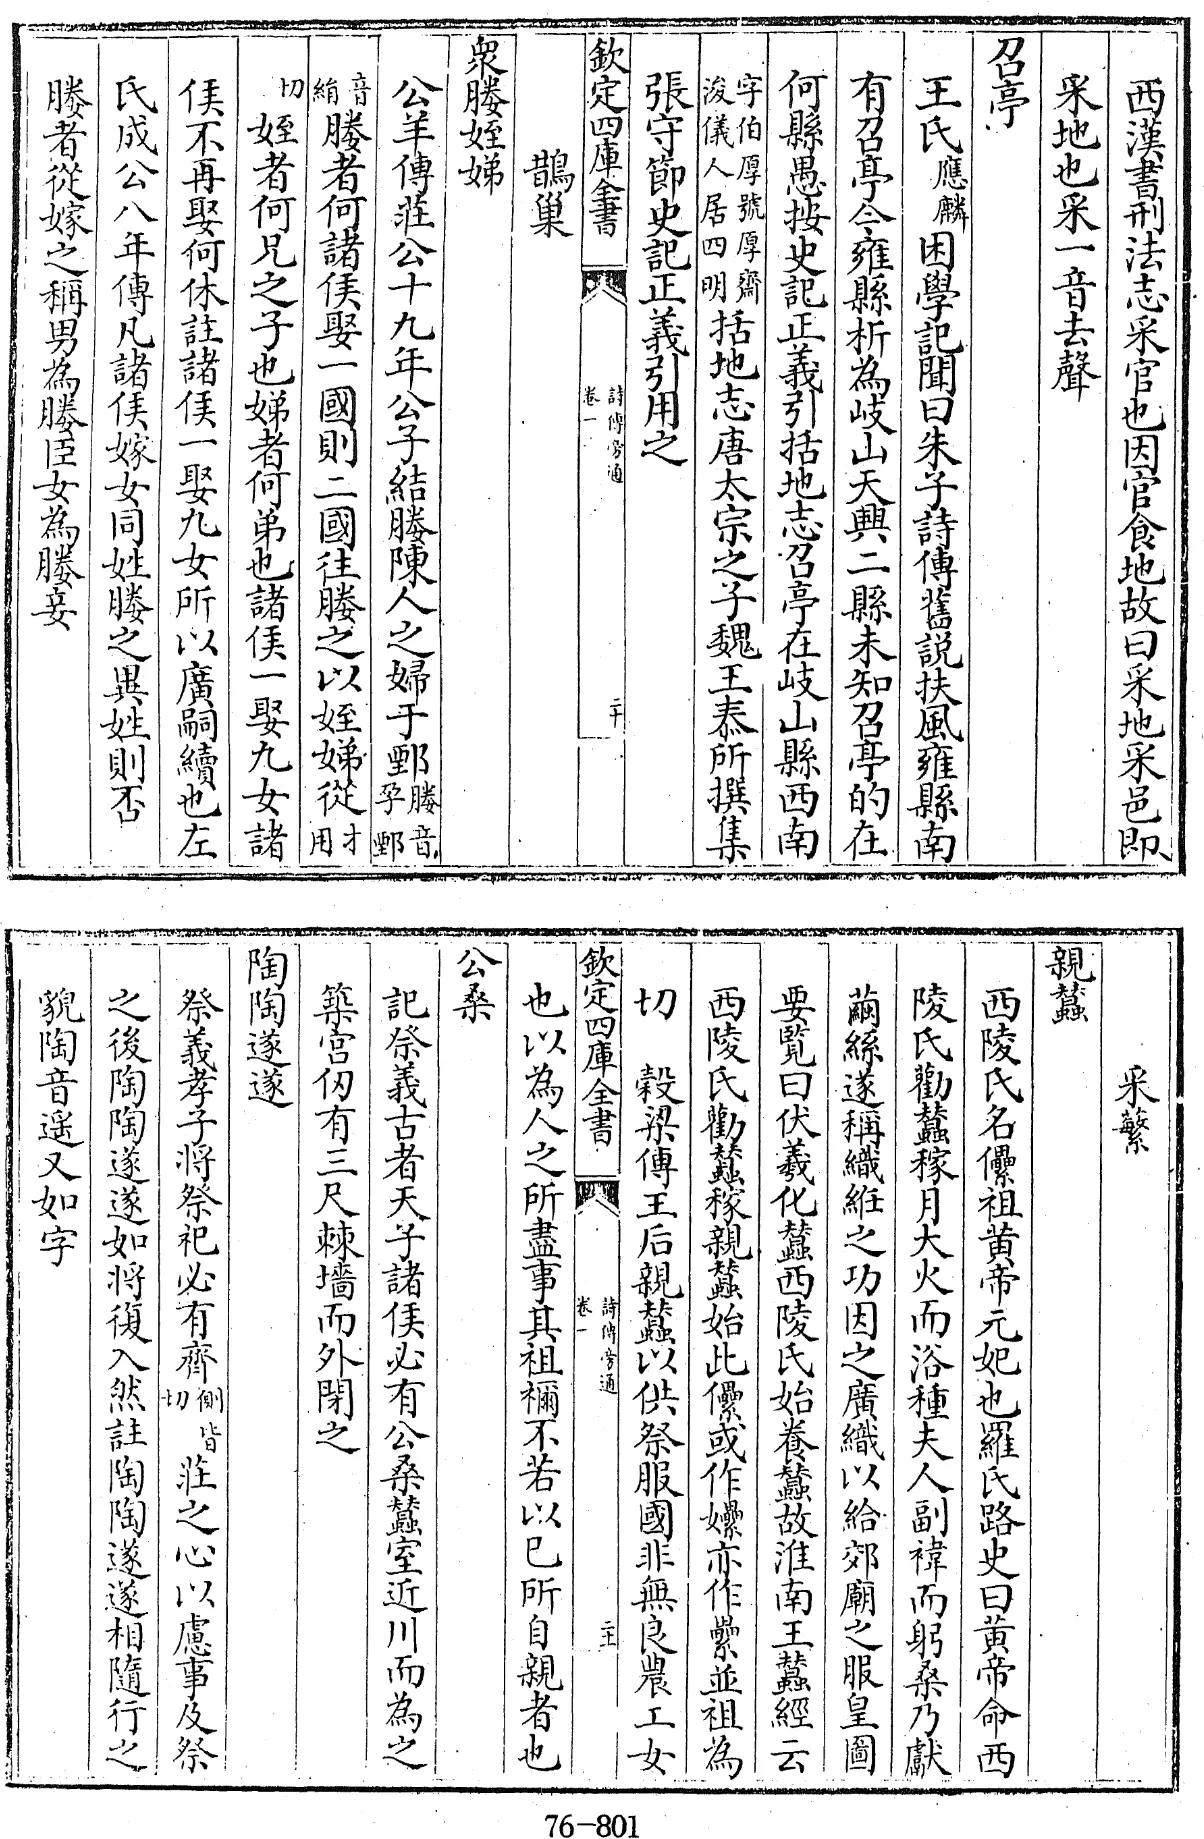 西漢書刑法志采官也因官食地故曰采地采邑即
采地也采一音去聲
召亭
王氏應麟困學記聞曰朱子詩傳舊説扶風雍縣南
有召亭今雍縣析為岐山天興二縣未知召亭的在
何縣愚按史記正義引括地志召亭在岐山縣西南
字伯厚號厚齋浚儀人居四明括地志唐太宗之子魏王泰所撰集
張守節史記正義引用之
欽定四庫全書
詩傳旁通
卷一
二十
鵲巢
衆媵姪娣
公羊傳莊公十九年公子結媵陳人之婦于鄄媵音孕鄄
音絹媵者何諸侯娶一國則二國往媵之以姪娣從才用
切姪者何兄之子也娣者何弟也諸侯一娶九女諸
侯不再娶何休註諸侯一娶九女所以廣嗣續也左
氏成公八年傳凡諸侯嫁女同姓媵之異姓則否
媵者從嫁之稱男為媵臣女為媵妾
采蘩
親蠶
西陵氏名儽祖黄帝元妃也羅氏路史曰黄帝命西
陵氏勸蠶稼月大火而浴種夫人副褘而躬桑乃獻
繭絲遂稱織絍之功因之廣織以給郊廟之服皇圖
要覧曰伏羲化蠶西陵氏始養蠶故淮南王蠶經云
西陵氏勸蠶稼親蠶始此儽或作嫘亦作纍並祖為
切　穀梁傳王后親蠶以供祭服國非無良農工女
欽定四庫全書
詩傳旁通
卷一
二十一
也以為人之所盡事其祖禰不若以已所自親者也
公桑
記祭義古者天子諸侯必有公桑蠶室近川而為之
築宫仞有三尺棘墻而外閉之
陶陶遂遂
祭義孝子將祭祀必有齊側皆切莊之心以慮事及祭
之後陶陶遂遂如將復入然註陶陶遂遂相隨行之
貌陶音遥又如字
76-801